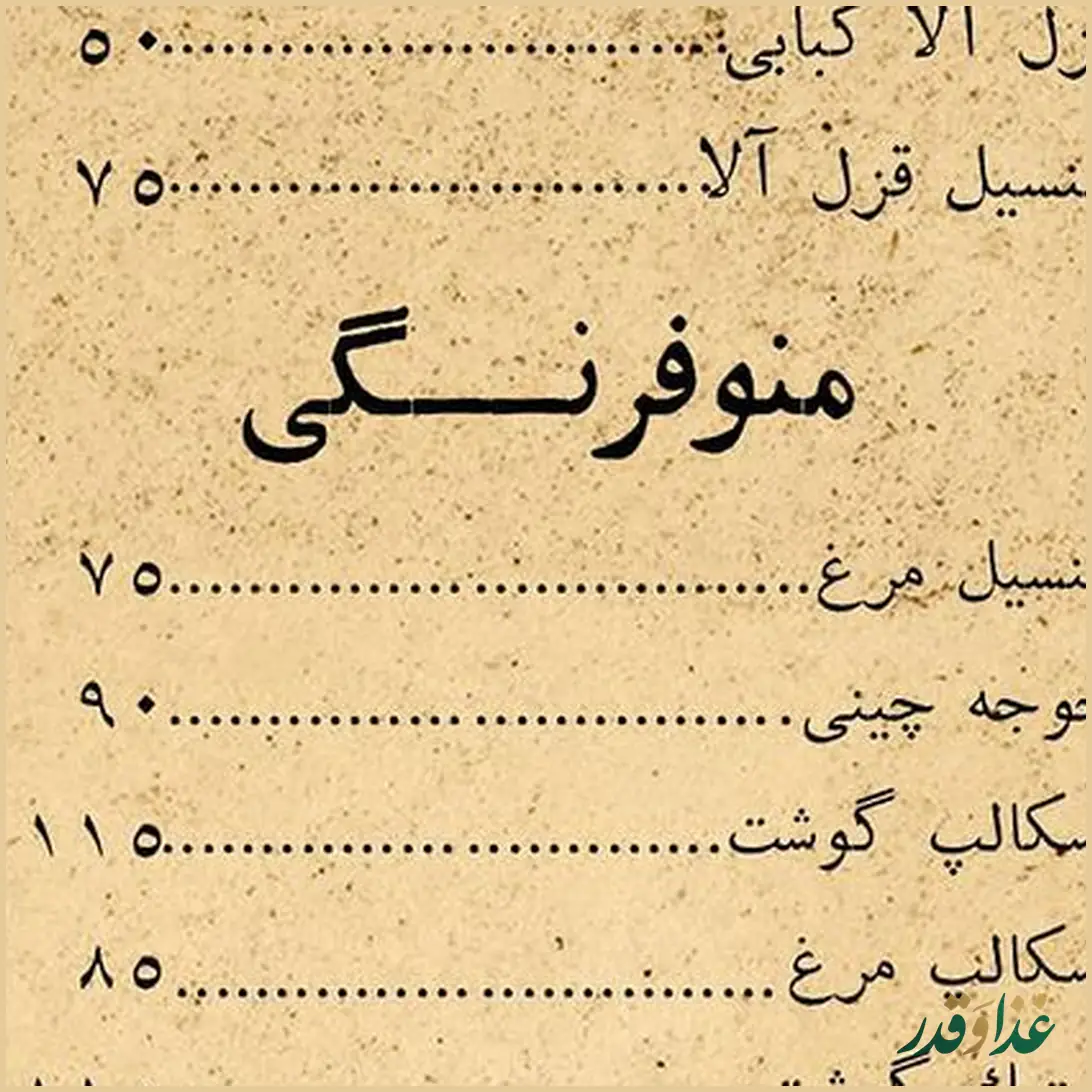 زل آلا کبابی......۵۰
نسیل قزل آلا......۷۵
منوفرنگی
نسیل مرغ......۷۵
وجه چینی......۹۰
سکالپ گوشت......۱۱۵
سکالب مرغ......۸۵
غذا و قدر